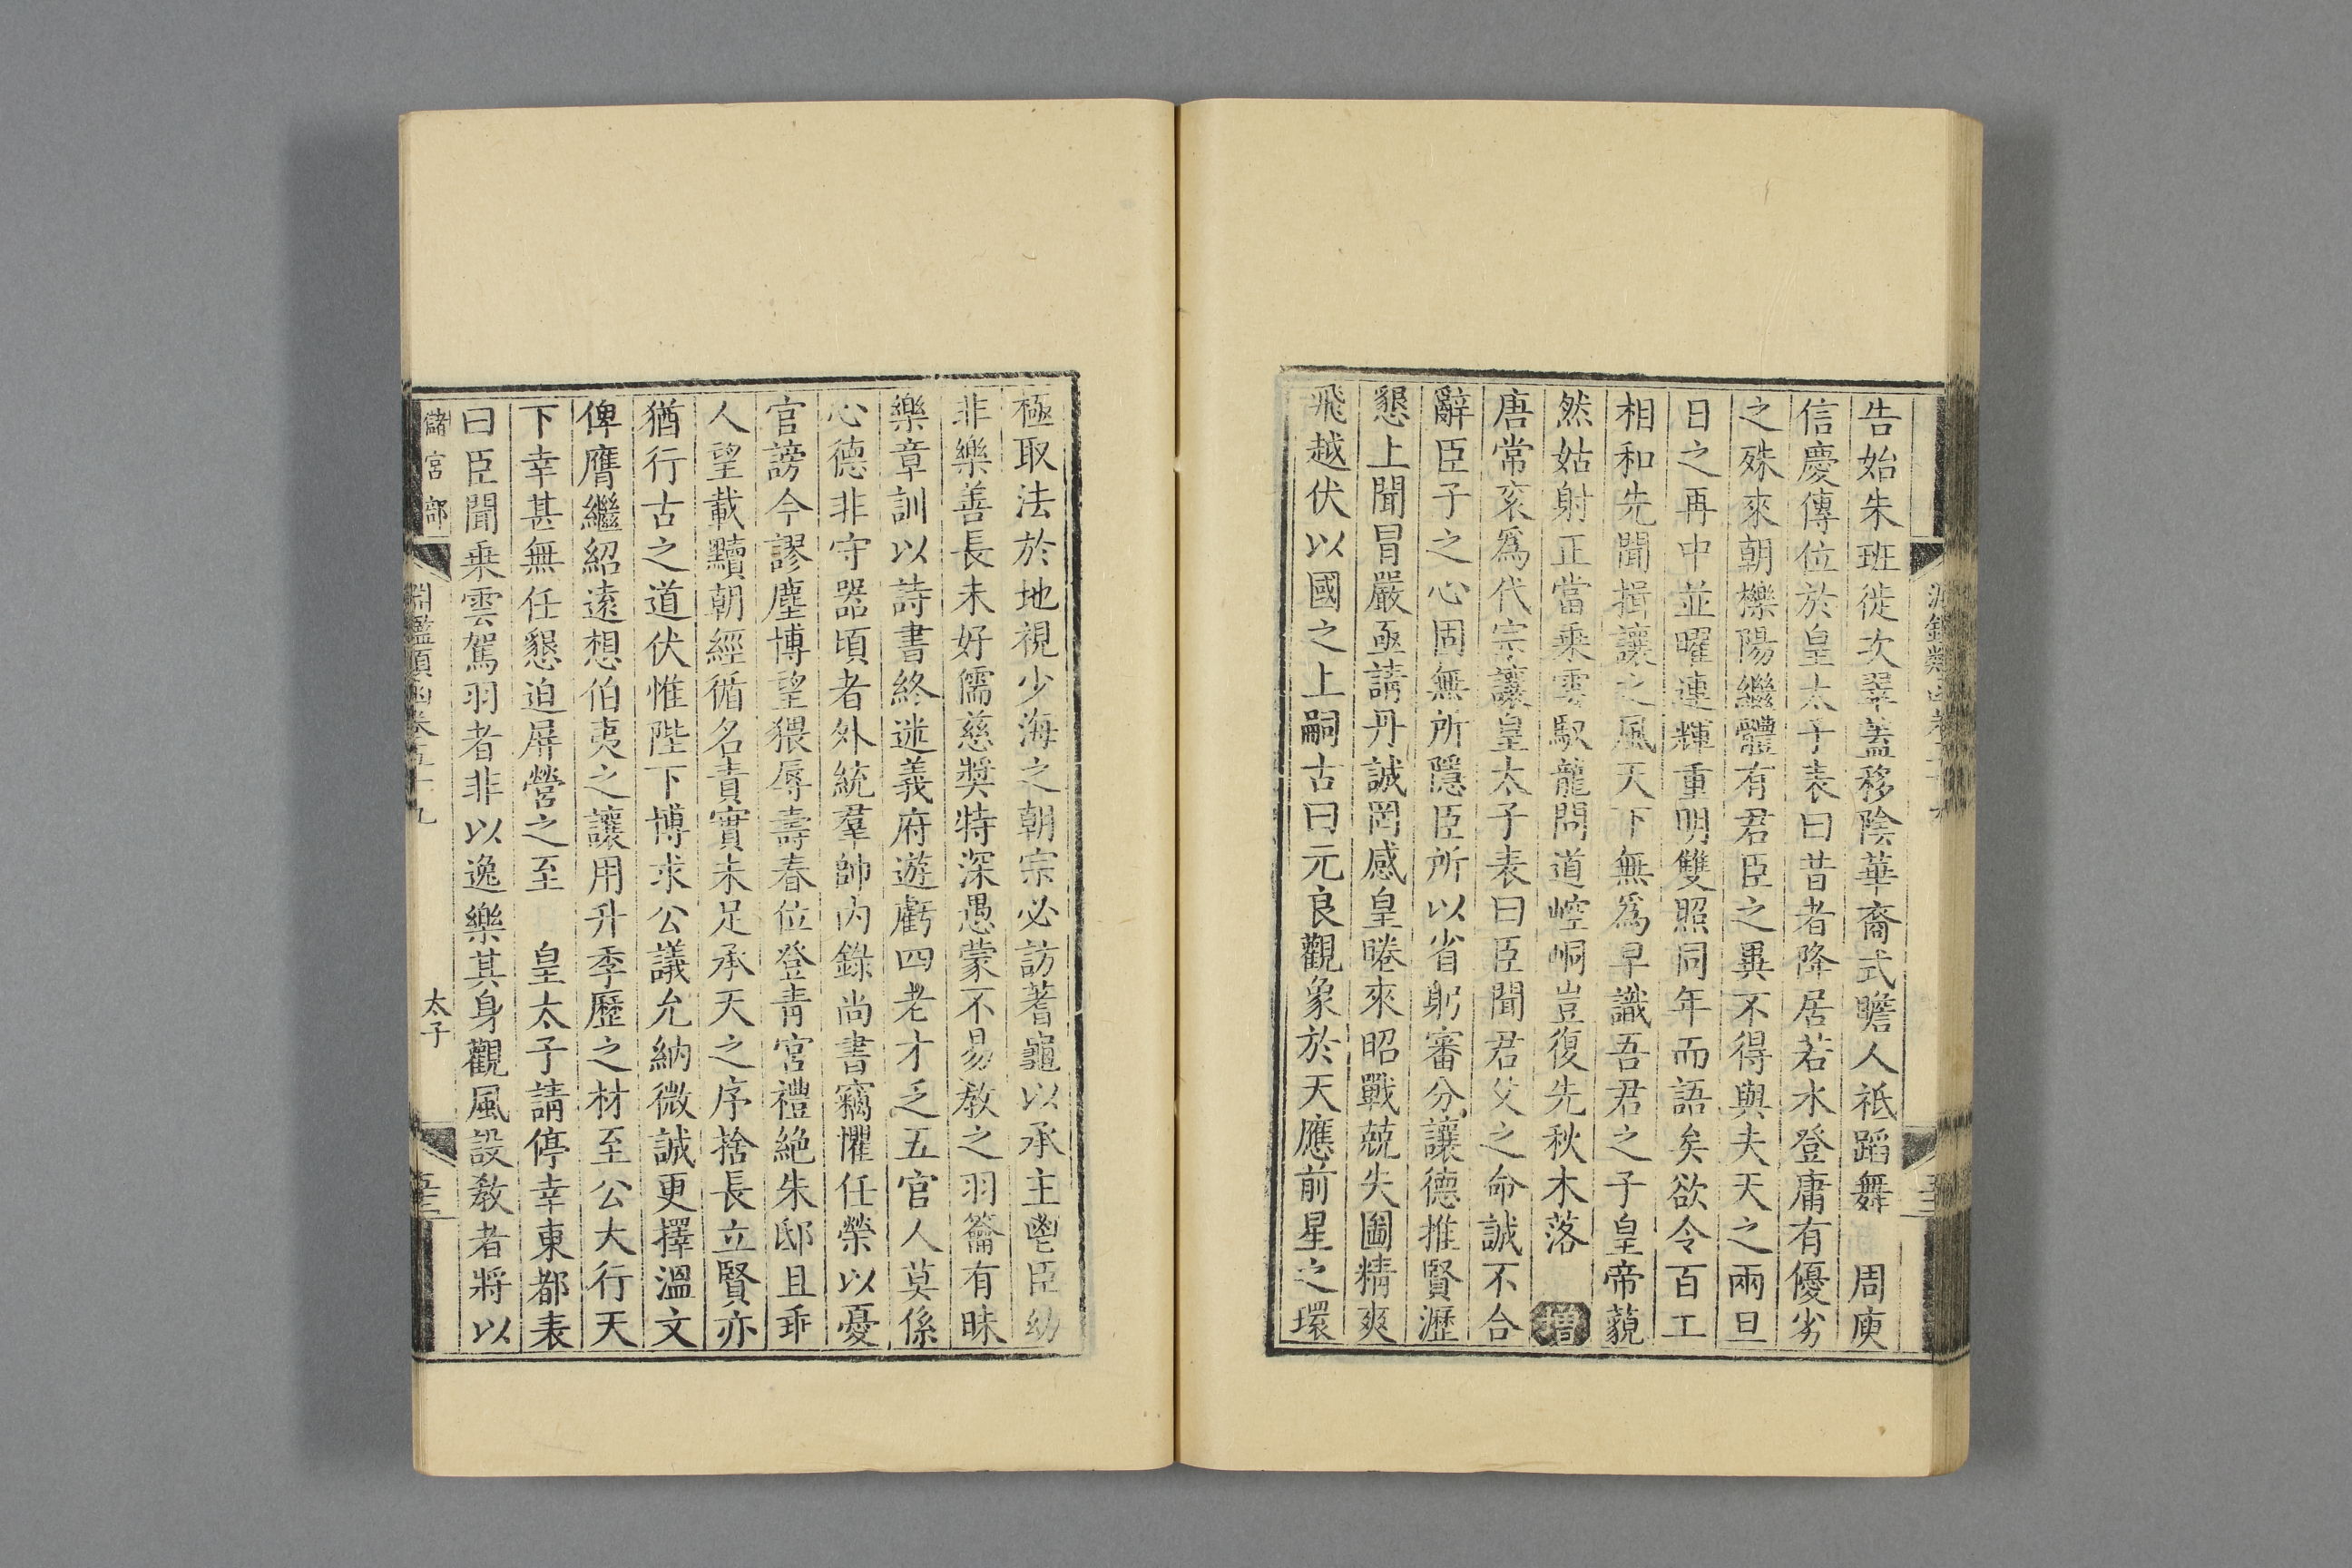 告始朱班徙次翠蓋移陰華裔式瞻人祇蹈舞　周庾
信慶傳位於皇太子表曰昔者降居若水登庸有優劣
之殊來朝櫟陽繼體有君臣之異不得與夫天之兩旦
日之再中並曜連輝重明雙照同年而語矣欲令百工
相和先聞揖讓之風天下無爲早識吾君之子皇帝藐
然姑射正當乘雲馭龍問道崆峒豈復先秋木落　增
唐常袞爲代宗讓皇太子表曰臣聞君父之命誠不合
辭臣子之心固無所隱臣所以省躬審分讓德推賢瀝
懇上聞冒嚴亟請丹誠罔感皇睠來昭戰兢失圖精爽
飛越伏以國之上嗣古曰元良觀象於天應前星之環
極取法於地視少海之朝宗必訪蓍龜以承主鬯臣幼
非樂善長未好儒慈奬特深愚蒙不易敎之羽籥有昧
樂章訓以詩書終迷義府遊虧四老才乏五官人莫係
心德非守器頃者外統羣帥内錄尚書竊懼任榮以憂
官謗今謬塵博望猥辱壽春位登青宮禮絶朱邸且乖
人望載黷朝經循名責實未足承天之序捨長立賢亦
猶行古之道伏惟陛下博求公議允納微誠更擇溫文
俾膺繼紹遠想伯夷之讓用升季歷之材至公大行天
下幸甚無任懇迫屏營之至　皇太子請停幸東都表
曰臣聞乘雲駕羽者非以逸樂其身觀風設敎者將以
儲宮部
淵鑑類函卷五十九
太子